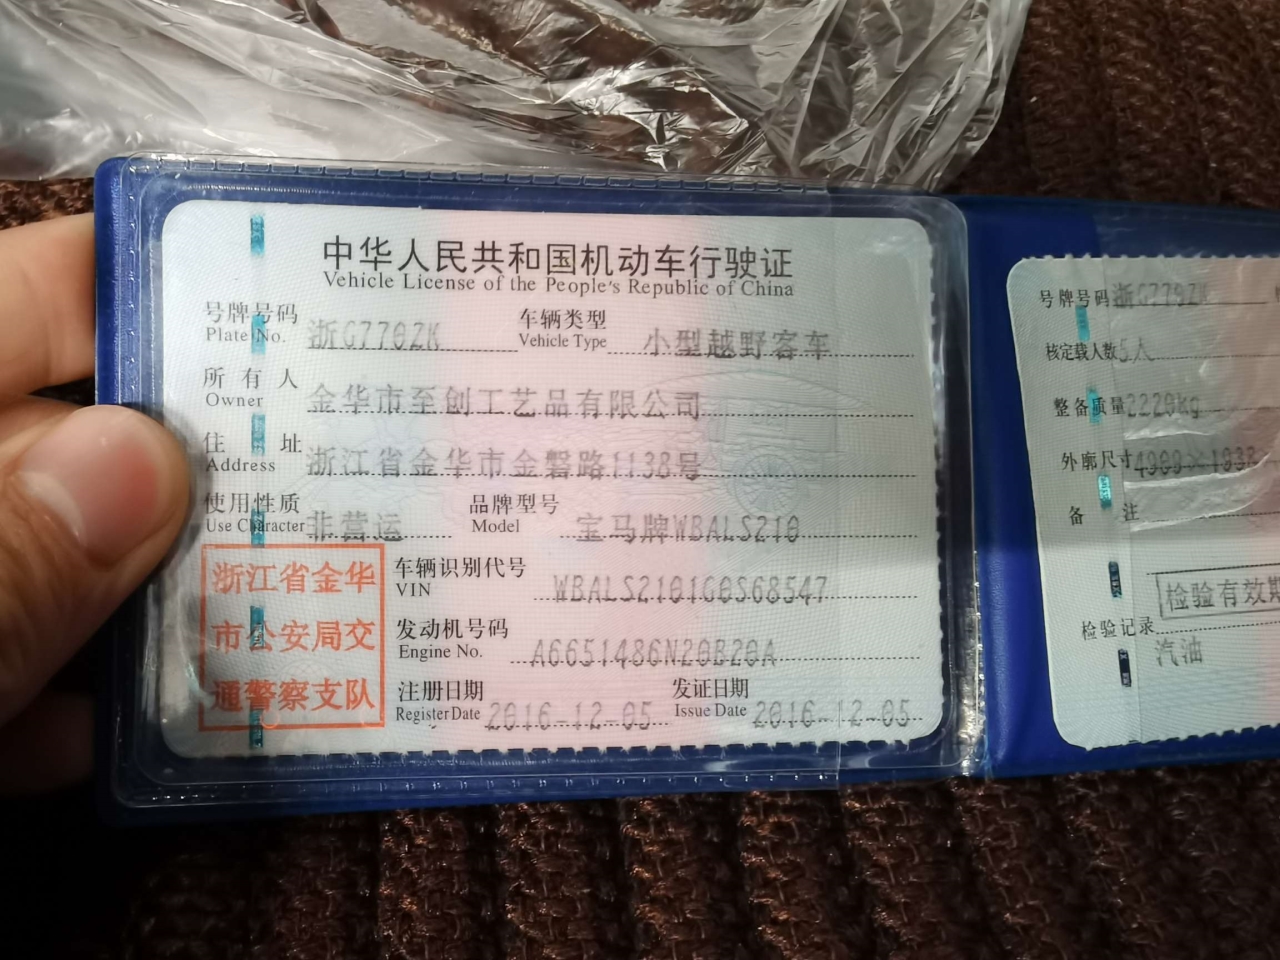 中华人民共和国机动车行驶证
Vehicle License of the People's Republic of China
号牌号码 浙G770ZK 车辆类型 小型越野客车
Plate No. Vehicle Type
所有人 金华市至创工艺品有限公司
Owner
住址 浙江省金华市金磐路1138号
Address
使用性质 非营运 品牌型号 宝马牌WBALS210
Use Character Model
浙江省金华
市公安局交
通警察支队
车辆识别代号 WBALS2101G0S68547
VIN
发动机号码 A6651486N20B20A
Engine No.
注册日期 2016-12-05 发证日期 2016-12-05
Register Date Issue Date
号牌号码
核定载人数 5人
整备质量 2220kg
外廓尺寸
备注
检验有效期
检验记录
汽油